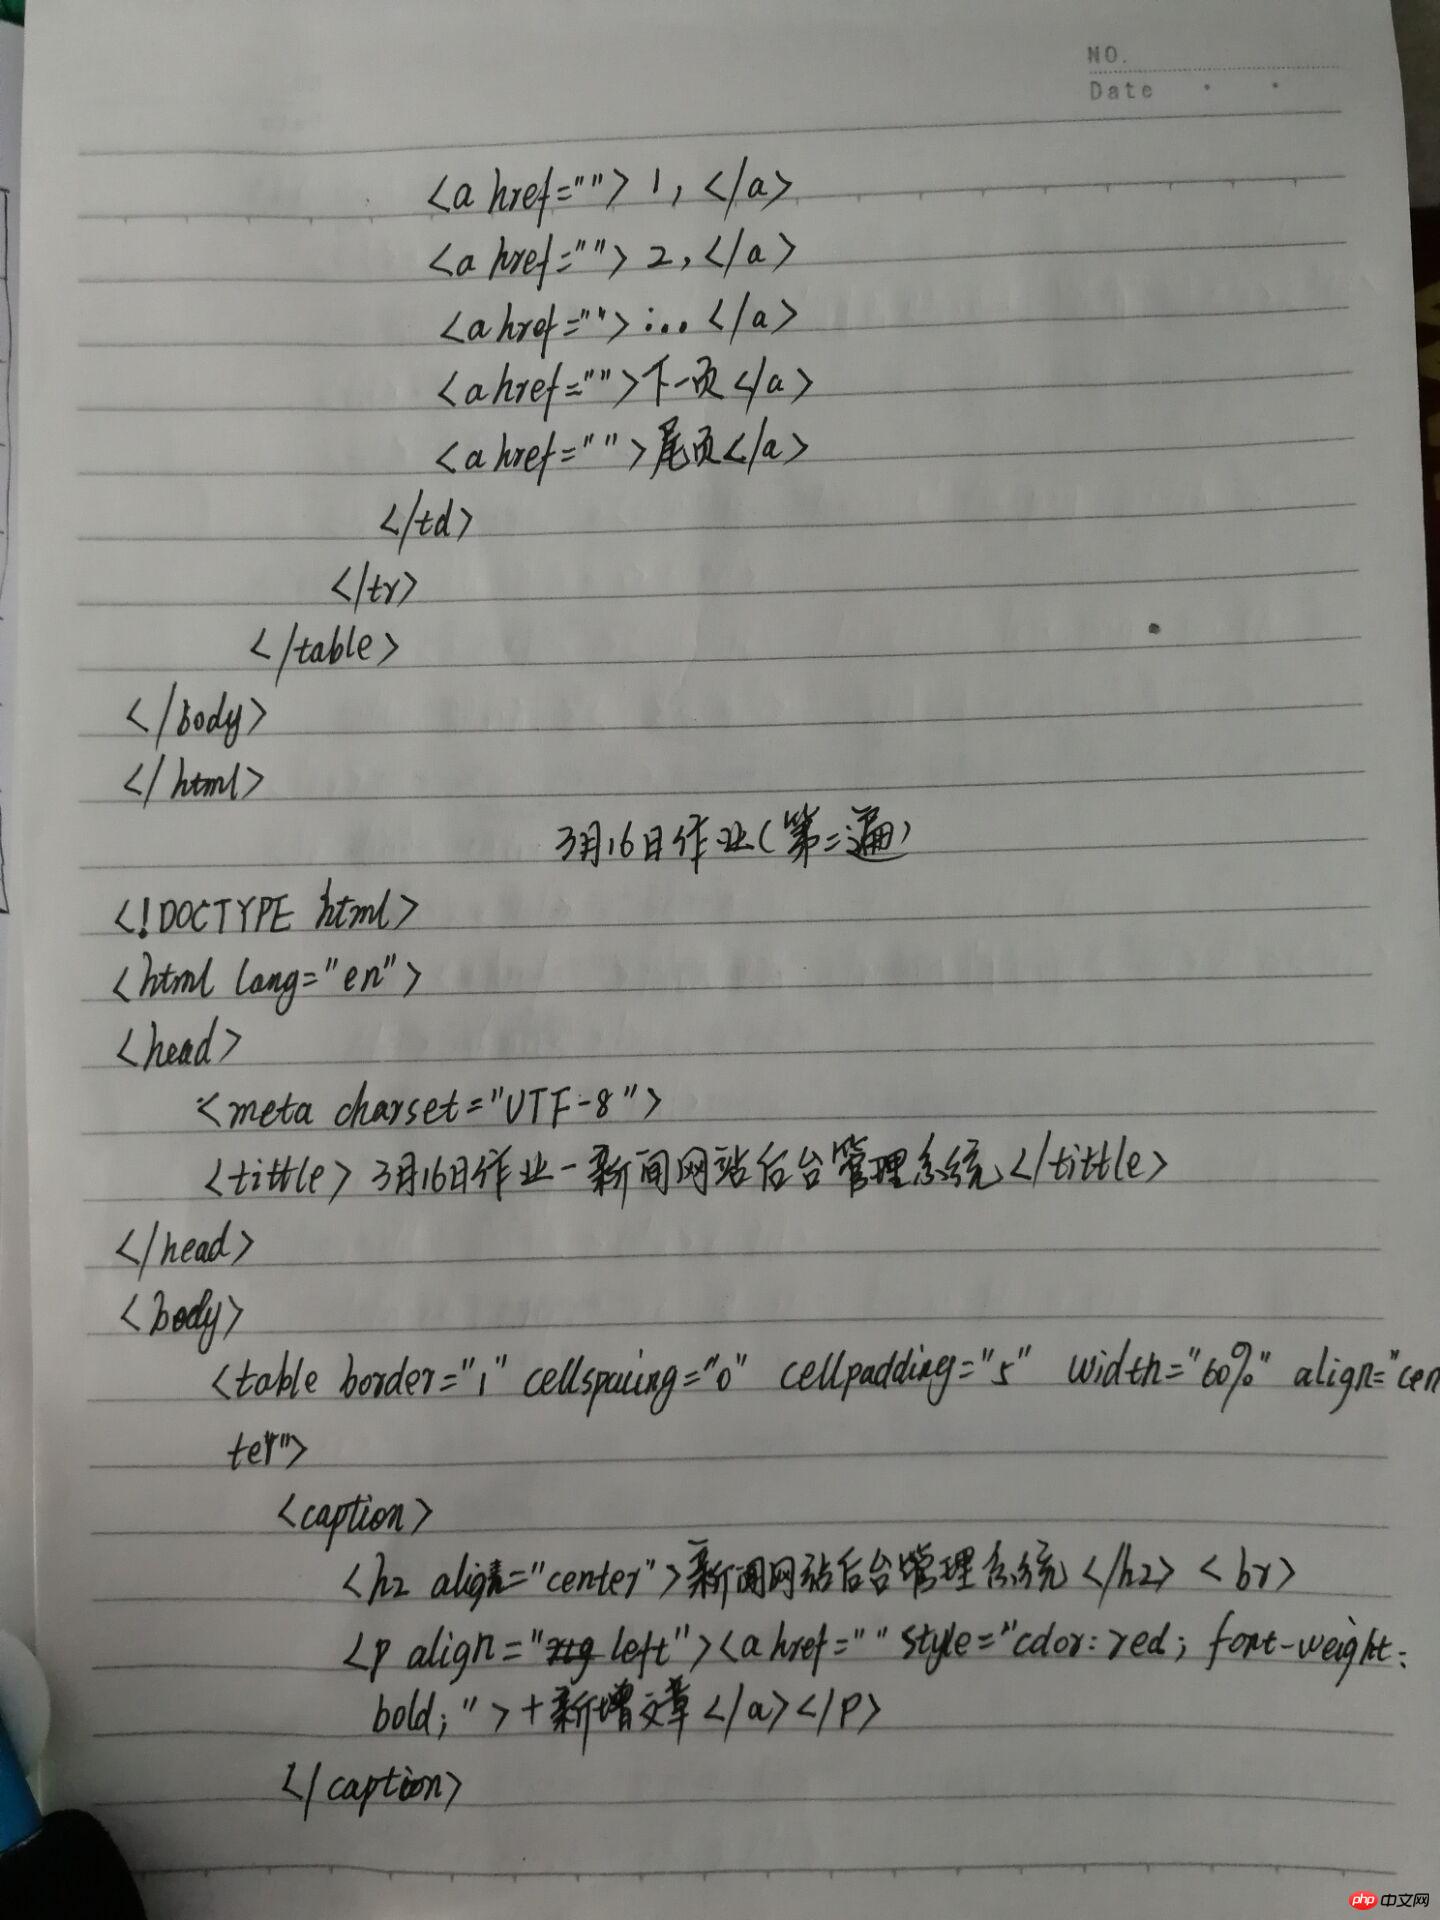 NO.
Date
<a href="">1,</a>
<a href="">2,</a>
<a href="">...</a>
<a href="">下一页</a>
<a href="">尾页</a>
</td>
</tr>
</table>
</body>
</html>
3月16日作业(第二遍)
<!DOCTYPE html>
<html lang="en">
<head>
<meta charset="UTF-8">
<tittle>3月16日作业-新闻网站后台管理系统</tittle>
</head>
<body>
<table border="1" cellspacing="0" cellpadding="5" width="60%" align="cen
ter">
<caption>
<h2 align="center">新闻网站后台管理系统</h2><br>
<p align="left"><a href="" style="color:red; font-weight:
bold;">+新增文章</a></p>
</caption>
php中文网